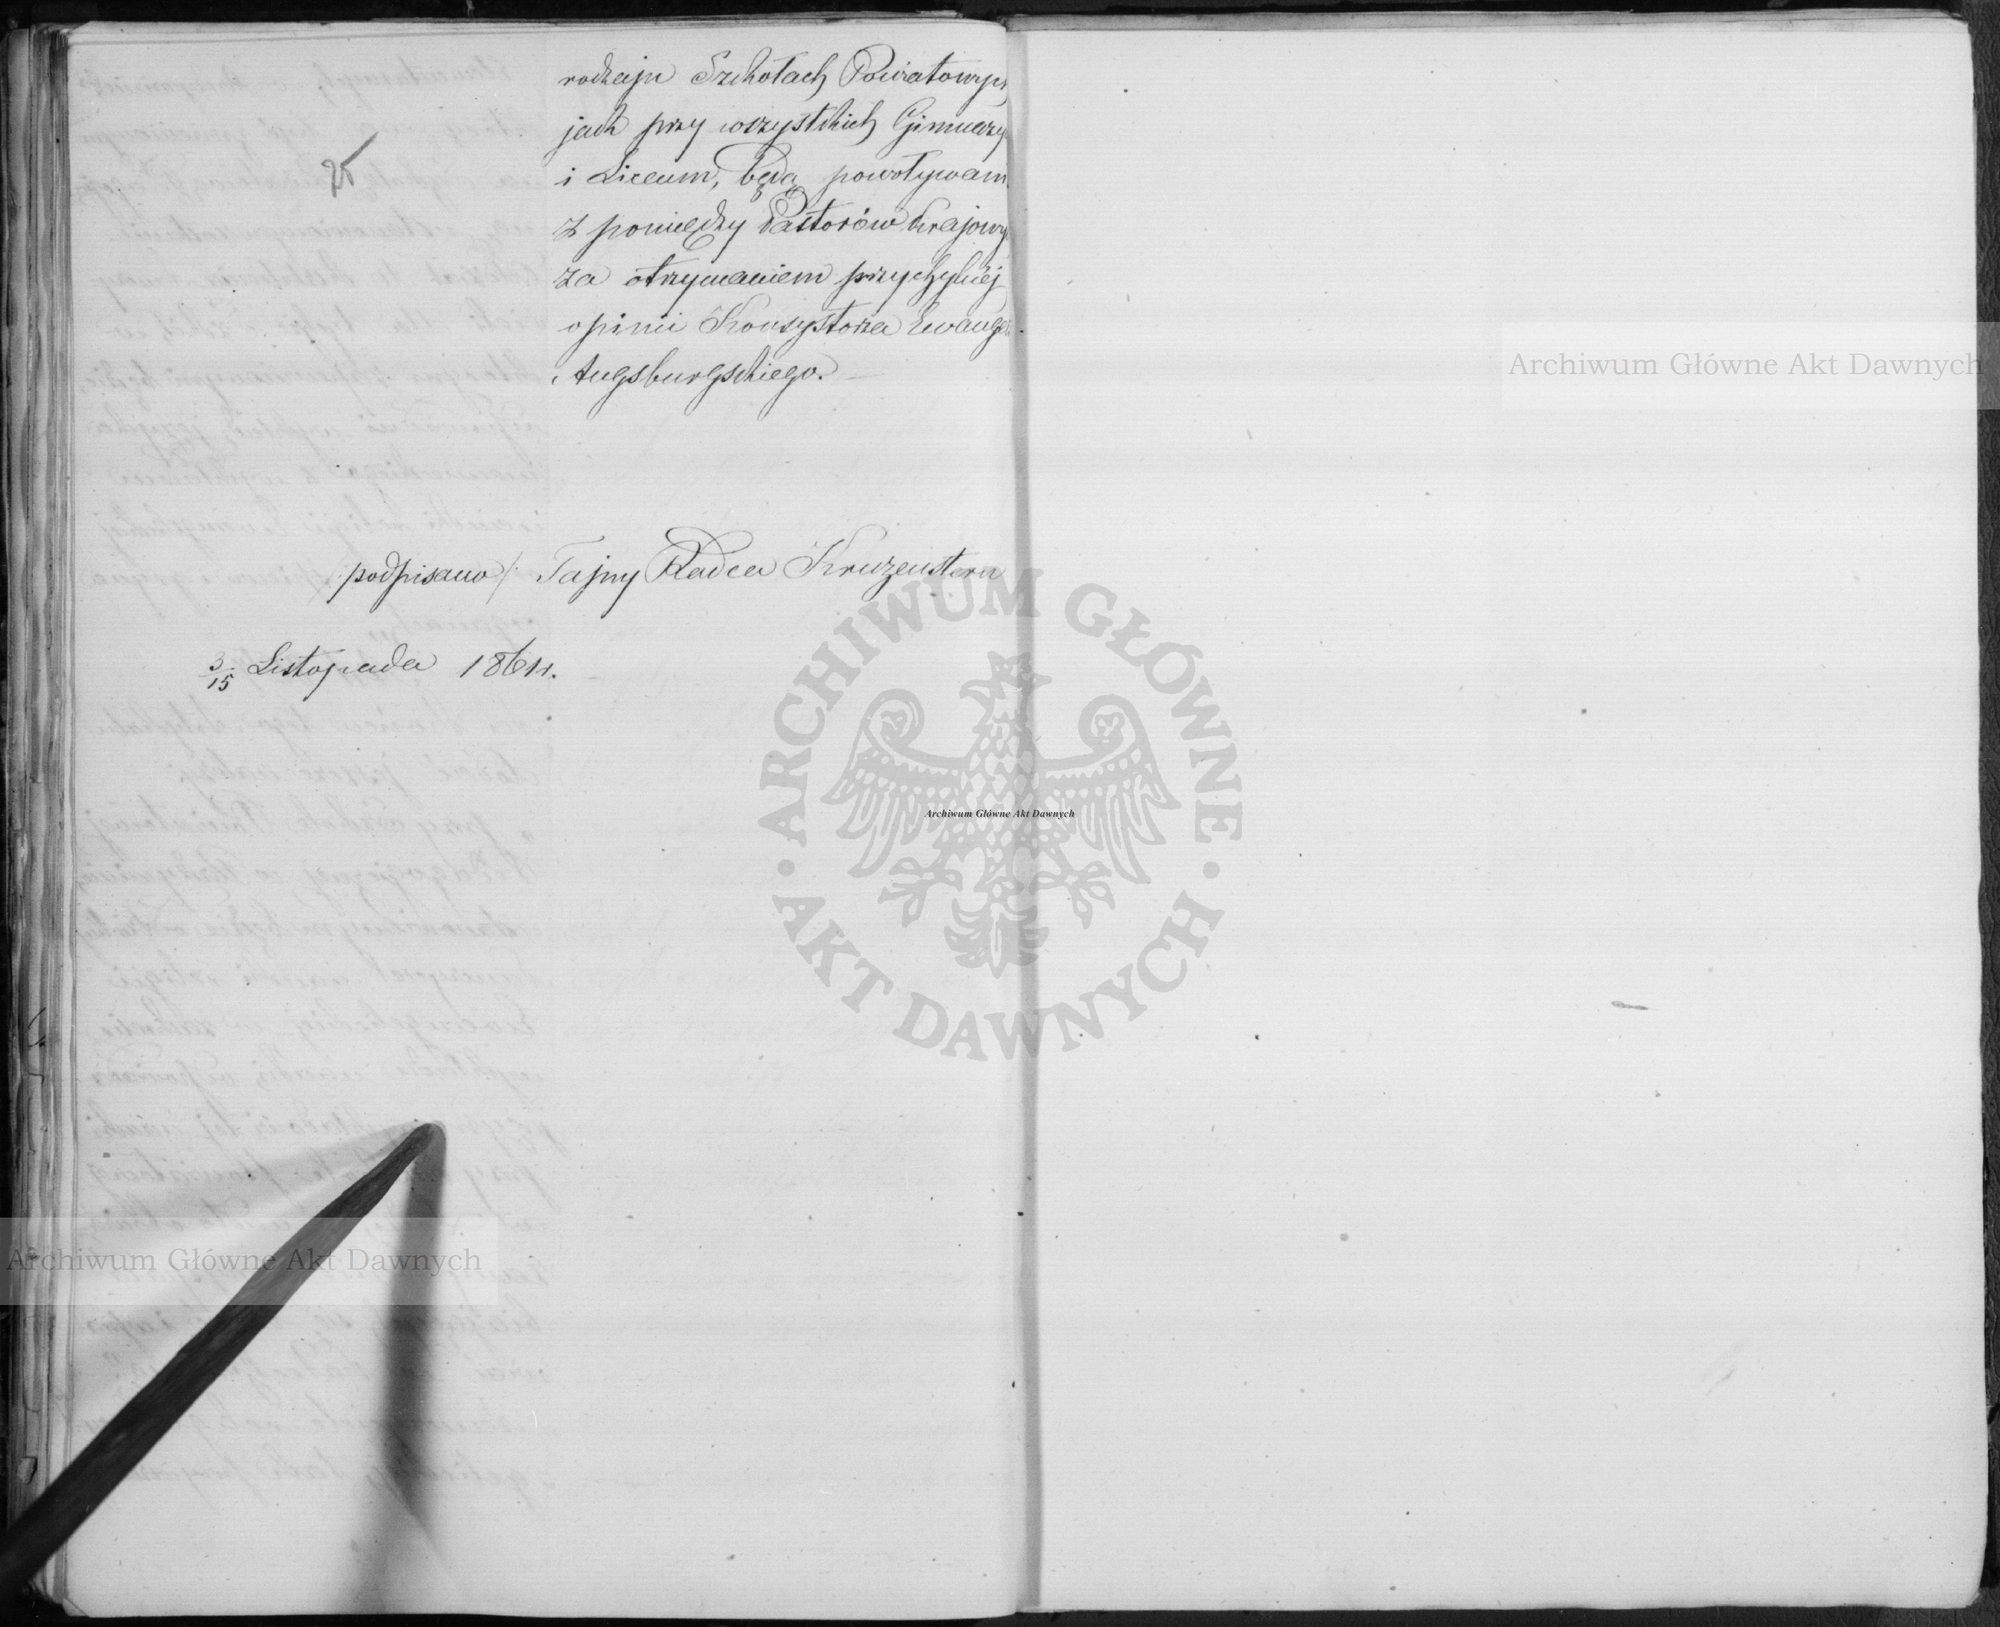 rodzaju Szkołach Powiatowych
jak przy wszystkich Gimnazy
i Liceum, będą powoływani
z pomiędzy Pastorów krajowy
za otrzymaniem przychylnéj
opinii Konsystorza Ewangel
Augsburgskiego.
25
/podpisano/ Tajny Radca Kruzenstern
3/15 Listopada 1861 r.
Archiwum Główne Akt Dawnych
ARCHIWUM GŁÓWNE AKT DAWNYCH
Archiwum Główne Akt Dawnych
Archiwum Główne Akt Dawnych